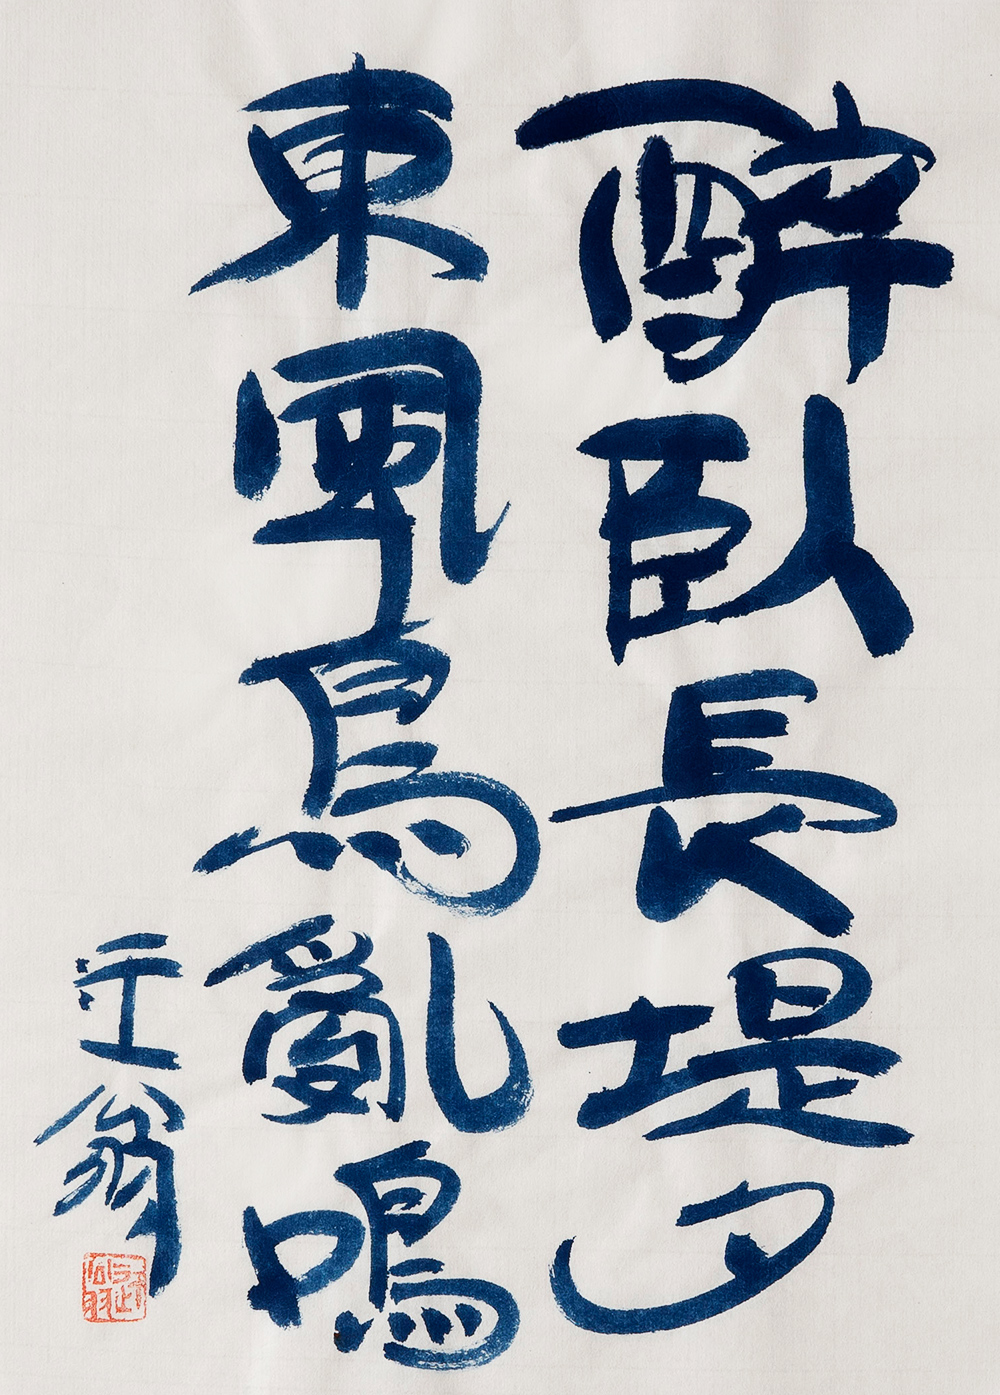 醉臥長堤夕
東風鳥亂鳴
翁